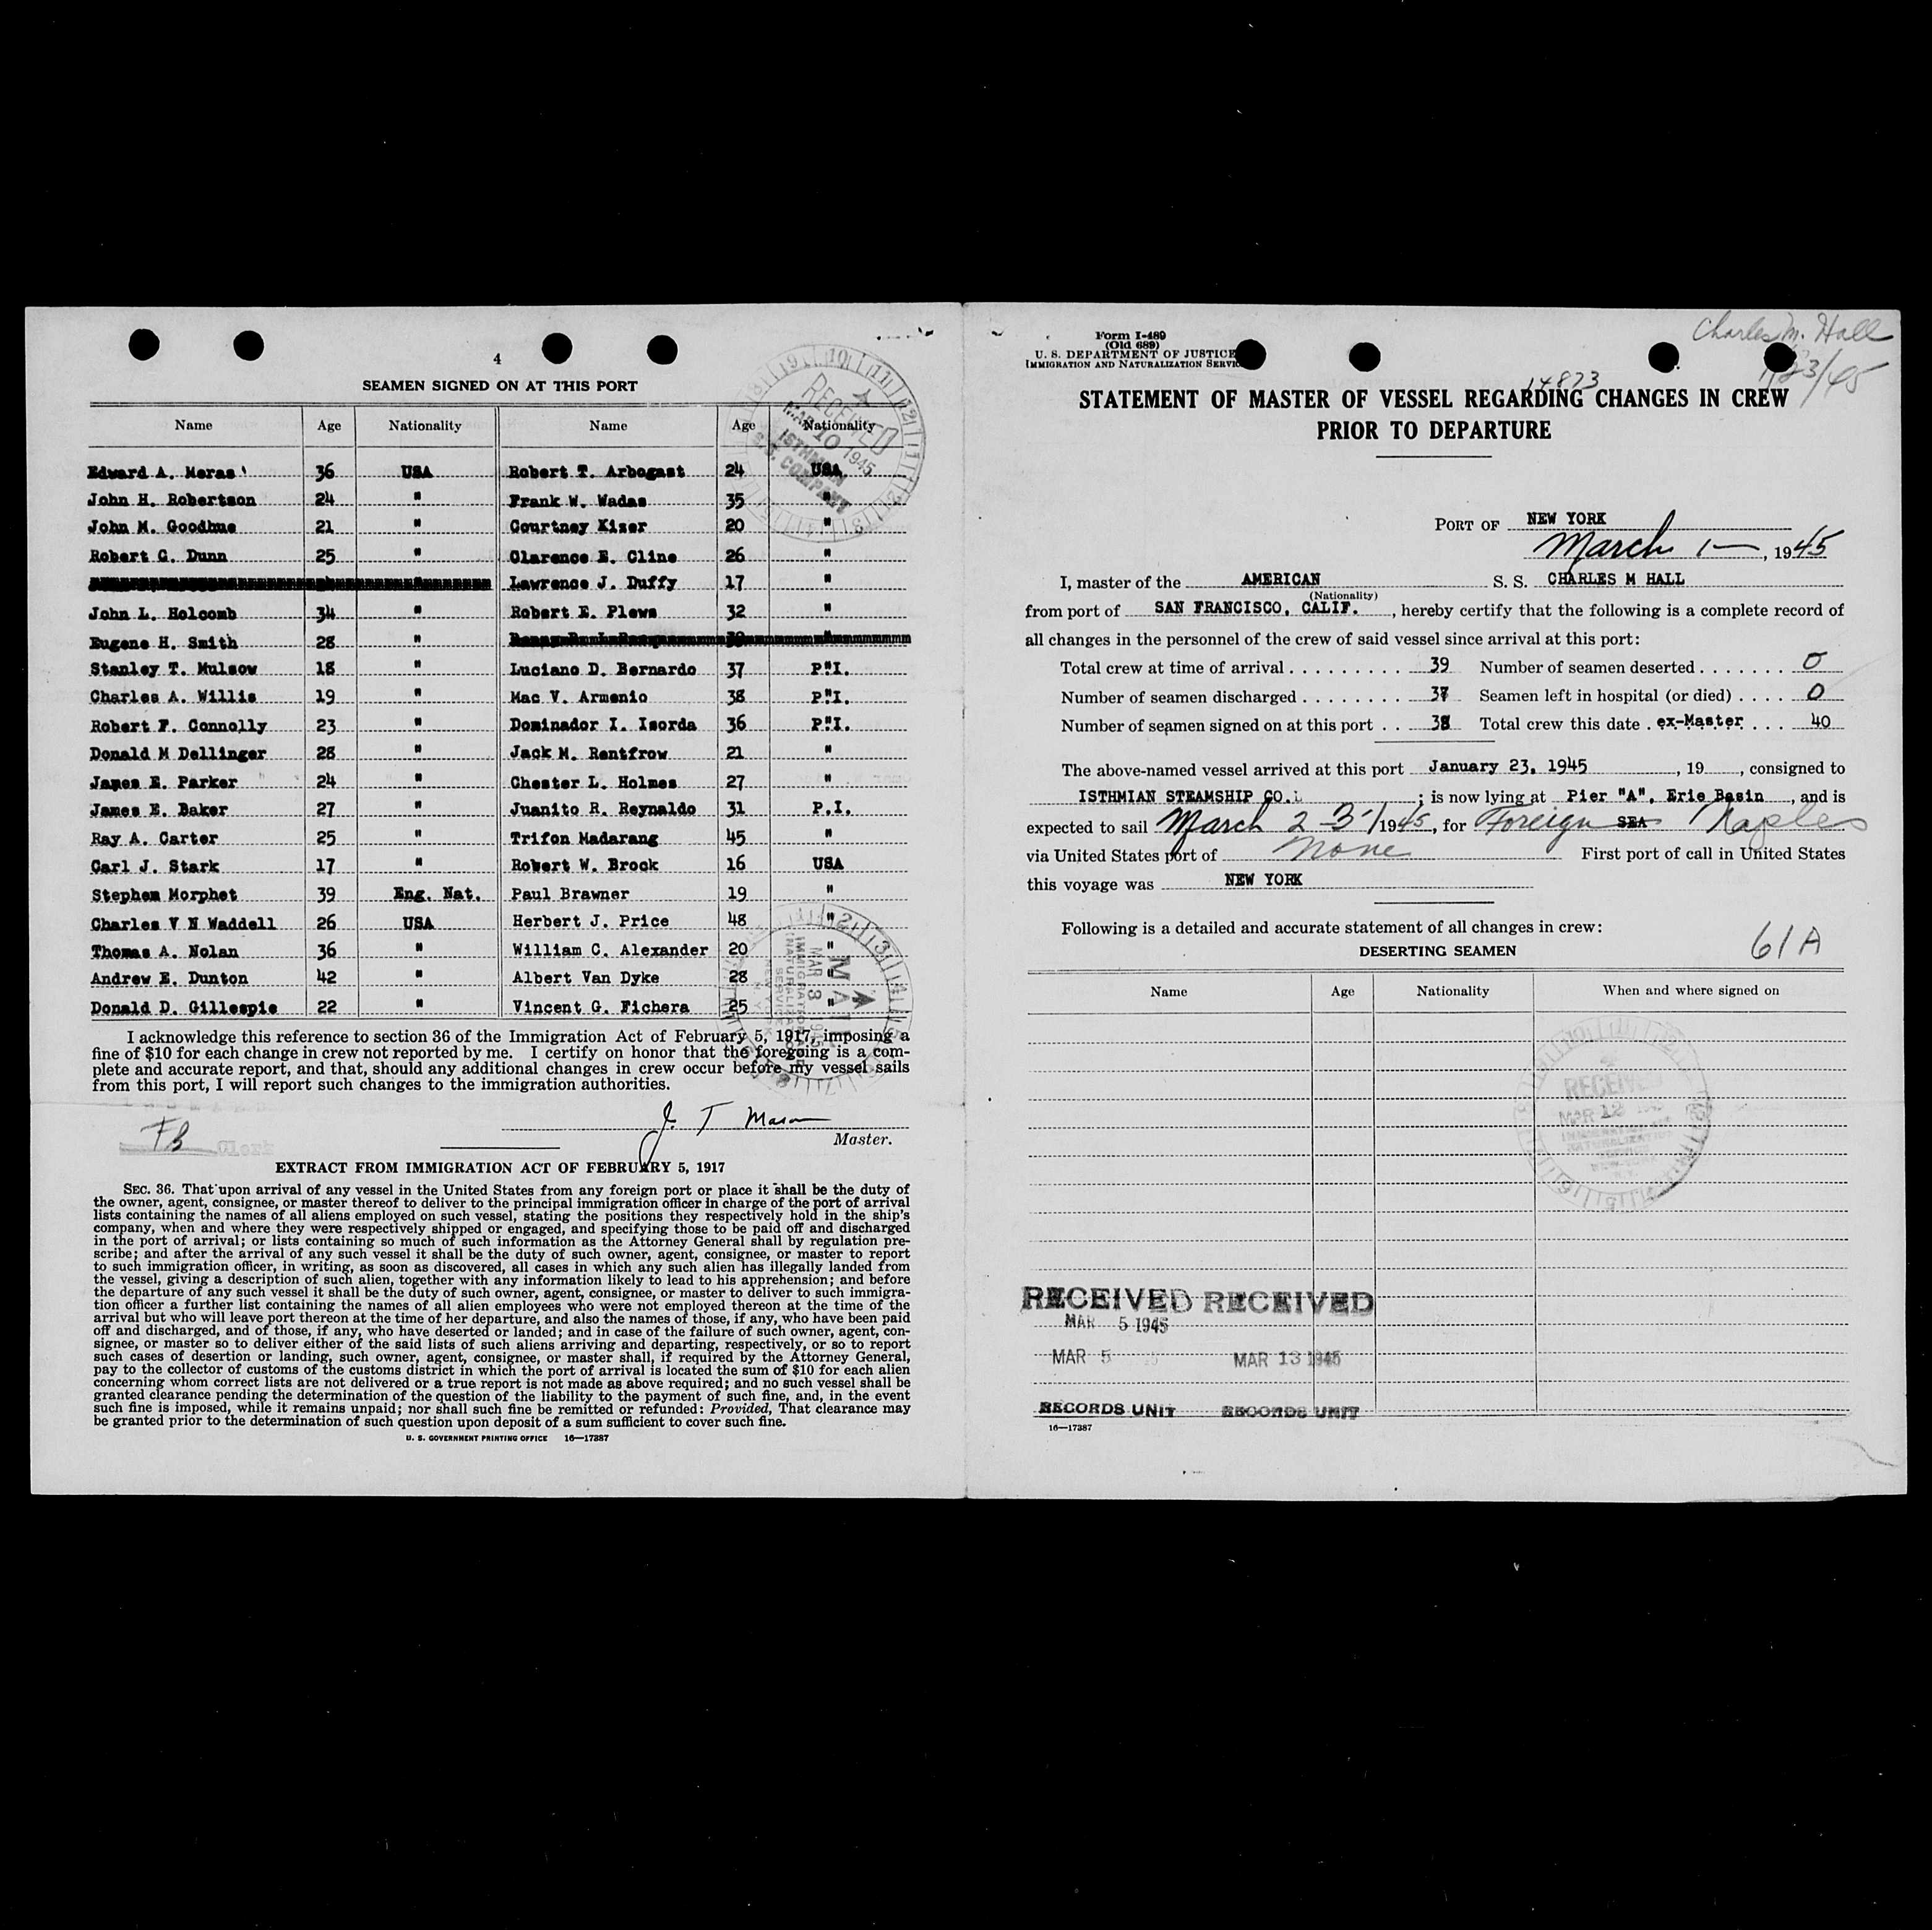 4
SEAMEN SIGNED ON AT THIS PORT
Name Age Nationality Name Age Nationality
Edward A. Meras 36 USA Robert T. Arbogast 24 USA
John H. Robertson 24 " Frank W. Wadas 35 "
John M. Goodhue 21 " Courtney Kiser 20 "
Robert G. Dunn 25 " Clarence E. Cline 26 "
Lawrence J. Duffy 17 "
John L. Holcomb 34 " Robert E. Plews 32 "
Eugene H. Smith 28 "
Stanley T. Mulsow 18 " Luciano D. Bernardo 37 P.I.
Charles A. Willis 19 " Mac V. Armenio 38 P.I.
Robert F. Connolly 23 " Dominador I. Isorda 36 P.I.
Donald M Dellinger 28 " Jack M. Rentfrow 21 "
James E. Parker 24 " Chester L. Holmes 27 "
James E. Baker 27 " Juanito R. Reynaldo 31 P.I.
Ray A. Carter 25 " Trifon Madarang 45 "
Carl J. Stark 17 " Robert W. Brock 16 USA
Stephen Morphet 39 Eng. Nat. Paul Brawner 19 "
Charles V N Waddell 26 USA Herbert J. Price 48 "
Thomas A. Nolan 36 " William C. Alexander 20 "
Andrew E. Dunton 42 " Albert Van Dyke 28 "
Donald D. Gillespie 22 " Vincent G. Fichera 25 "
RECEIVED
MAR 10 1945
ISTHMIAN
S.S. COMPANY
MAIL
MAR 8 1945
IMMIGRATION AND
NATURALIZATION
SERVICE
NEW YORK
N.Y.
I acknowledge this reference to section 36 of the Immigration Act of February 5, 1917, imposing a
fine of $10 for each change in crew not reported by me. I certify on honor that the foregoing is a com-
plete and accurate report, and that, should any additional changes in crew occur before my vessel sails
from this port, I will report such changes to the immigration authorities.
J. T Mason
FB Clerk
Master.
EXTRACT FROM IMMIGRATION ACT OF FEBRUARY 5, 1917
SEC. 36. That upon arrival of any vessel in the United States from any foreign port or place it shall be the duty of
the owner, agent, consignee, or master thereof to deliver to the principal immigration officer in charge of the port of arrival
lists containing the names of all aliens employed on such vessel, stating the positions they respectively hold in the ship's
company, when and where they were respectively shipped or engaged, and specifying those to be paid off and discharged
in the port of arrival; or lists containing so much of such information as the Attorney General shall by regulation pre-
scribe; and after the arrival of any such vessel it shall be the duty of such owner, agent, consignee, or master to report
to such immigration officer, in writing, as soon as discovered, all cases in which any such alien has illegally landed from
the vessel, giving a description of such alien, together with any information likely to lead to his apprehension; and before
the departure of any such vessel it shall be the duty of such owner, agent, consignee, or master to deliver to such immigra-
tion officer a further list containing the names of all alien employees who were not employed thereon at the time of the
arrival but who will leave port thereon at the time of her departure, and also the names of those, if any, who have been paid
off and discharged, and of those, if any, who have deserted or landed; and in case of the failure of such owner, agent, con-
signee, or master so to deliver either of the said lists of such aliens arriving and departing, respectively, or so to report
such cases of desertion or landing, such owner, agent, consignee, or master shall, if required by the Attorney General,
pay to the collector of customs of the customs district in which the port of arrival is located the sum of $10 for each alien
concerning whom correct lists are not delivered or a true report is not made as above required; and no such vessel shall be
granted clearance pending the determination of the question of the liability to the payment of such fine, and, in the event
such fine is imposed, while it remains unpaid; nor shall such fine be remitted or refunded: Provided, That clearance may
be granted prior to the determination of such question upon deposit of a sum sufficient to cover such fine.
U. S. GOVERNMENT PRINTING OFFICE 16—17387
Form I-489
(Old 689)
U. S. DEPARTMENT OF JUSTICE
IMMIGRATION AND NATURALIZATION SERVICE
Charles M. Hall
1/23/45
14873
STATEMENT OF MASTER OF VESSEL REGARDING CHANGES IN CREW
PRIOR TO DEPARTURE
PORT OF NEW YORK
March 1—, 1945
I, master of the AMERICAN S. S. CHARLES M HALL
(Nationality)
from port of SAN FRANCISCO, CALIF., hereby certify that the following is a complete record of
all changes in the personnel of the crew of said vessel since arrival at this port:
Total crew at time of arrival . . . . . . . . . . 39 Number of seamen deserted . . . . . . . 0
Number of seamen discharged . . . . . . . . . 37 Seamen left in hospital (or died) . . . . 0
Number of seamen signed on at this port . . 38 Total crew this date . ex-Master . . . 40
The above-named vessel arrived at this port January 23, 1945, 19 , consigned to
ISTHMIAN STEAMSHIP CO. ; is now lying at Pier "A", Erie Basin , and is
expected to sail March 2-3-/1945, for Foreign SEA Naples
via United States port of None First port of call in United States
this voyage was NEW YORK
Following is a detailed and accurate statement of all changes in crew:
DESERTING SEAMEN
61A
Name Age Nationality When and where signed on
RECEIVED
MAR 12
IMMIGRATION AND
NATURALIZATION
SERVICE
NEW YORK
RECEIVED RECEIVED
MAR 5 1945
MAR 5 MAR 13 1945
RECORDS UNIT RECORDS UNIT
16—17387